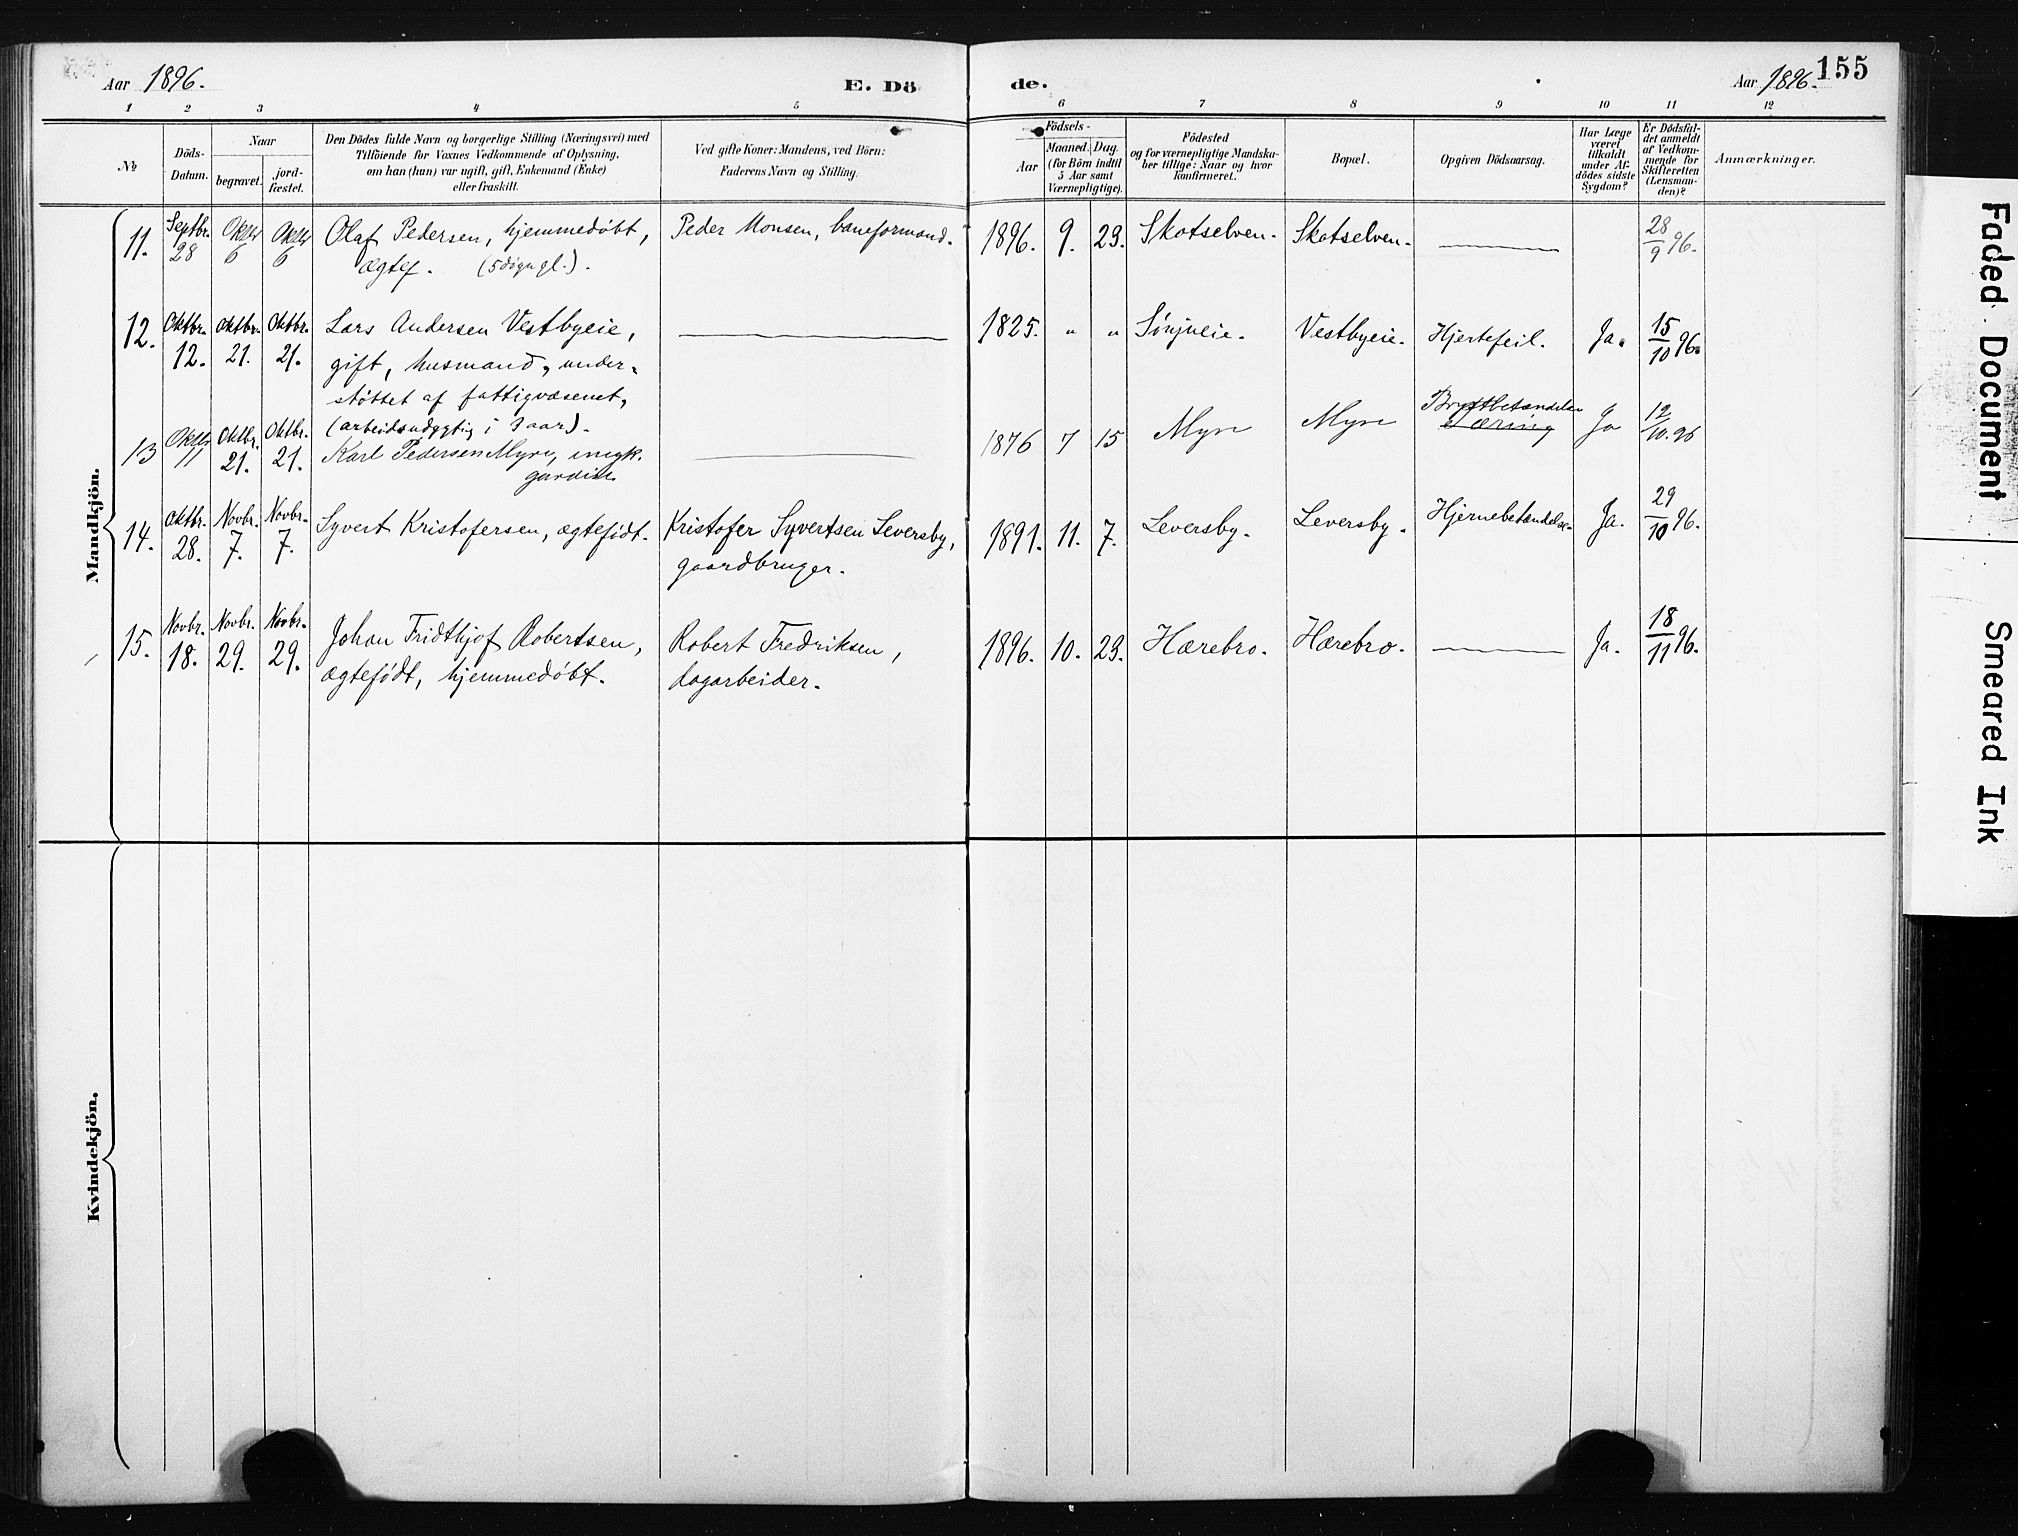 Aar 1896.
E. Dö
de.
Aar 1896.
155
1 2 3 4 5 6 7 8 9 10 11 12
№
Döds-
Datum.
Naar
begravet.
jord-
fæstet.
Den Dödes fulde Navn og borgerlige Stilling (Næringsvei) med
Tilföiende for Voxnes Vedkommende af Oplysning,
om han (hun) var ugift, gift, Enkemand (Enke)
eller fraskilt.
Ved gifte Koner: Mandens, ved Börn:
Faderens Navn og Stilling.
Födsels-
Aar
Maaned. Dag.
(for Börn indtil
5 Aar samt
Værnepligtige).
Födested
og for værnepligtige Mandska-
ber tillige: Naar og hvor
konfirmeret.
Bopæl.
Opgiven Dödsaarsag.
Har Læge
været
tilkaldt
under Af-
dödes sidste
Sygdom?
Er Dödsfal-
det anmeldt
af Vedkom-
mende for
Skifteretten
(Lensman-
den)?
Anmærkninger.
Mandkjön.
11. Septbr. 28 Oktbr 6 Oktbr 6 Olaf Pedersen, hjemmedøbt, Peder Monsen, baneformand. 1896. 9. 23. Skotselven. Skotselven. 28/9 96.
ægtef. (5 døgn gl.).
12. Oktbr. 12. Oktbr. 21. Oktbr. 21. Lars Andersen Vestbyeie, 1825. " " Vestbyeie. Hjertefeil. Ja. 15/10 96.
gift, husmand, under-
støttet af fattigvæsenet,
(arbeidsudygtig i 3 aar).
13 Oktbr 11 Oktbr. 21. Oktbr. 21. Karl Pedersen Myre, ungk. 1876 7 15 Myre Myre Brystbetændelse Tæring Ja 12/10. 96
gardist
14. Oktbr. 28. Novbr. 7. Novbr. 7. Syvert Kristofersen, ægtefødt. Kristofer Syvertsen Leversby, 1891. 11. 7. Leversby. Leversby. Hjernebetændelse. Ja. 29/10 96.
gaardbruger.
15. Novbr. 18. Novbr. 29. Novbr. 29. Johan Fridthjof Robertsen, Robert Fredriksen, 1896. 10. 23. Hærebro. Hærebro. Ja. 18/11 96.
ægtefødt, hjemmedøbt. dagarbeider.
Kvindekjön.
Faded Document
Smeared Ink